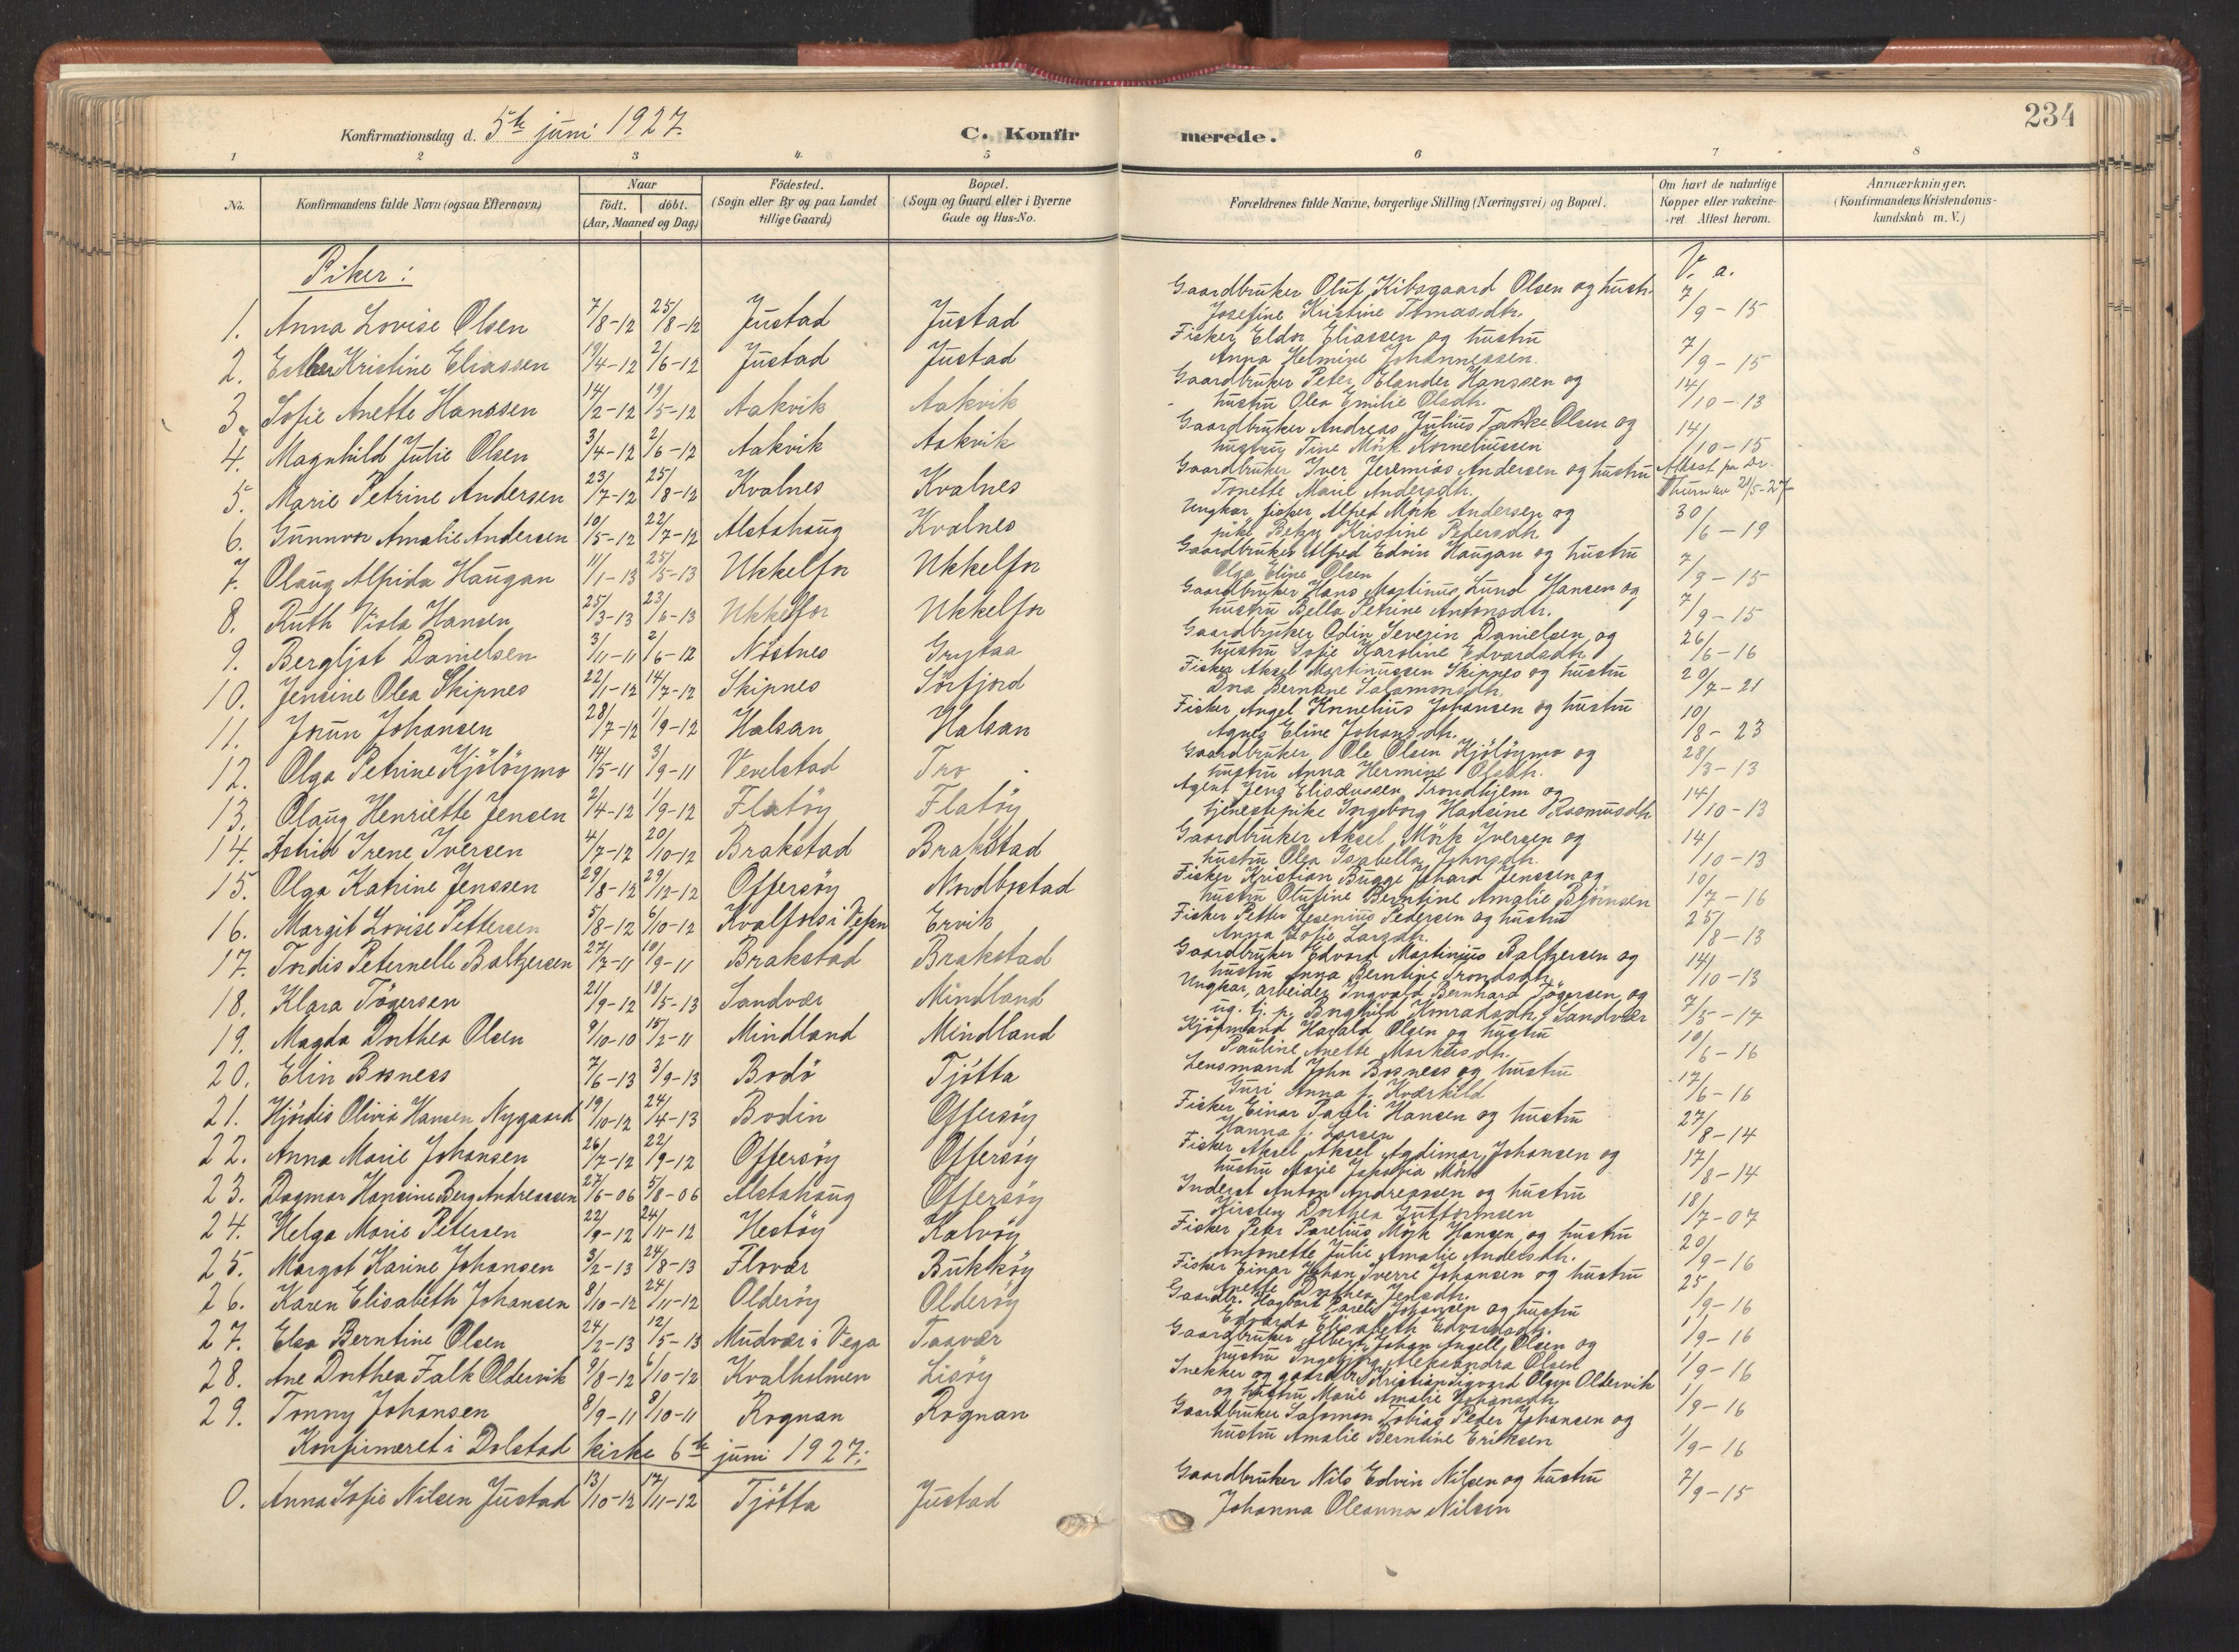 234
Konfirmationsdag d. 5te juni 1927.
C. Konfirmerede.
1 2 3 4 5 6 7 8
No. Konfirmandens fulde Navn (ogsaa Efternavn) Naar født. døbt. (Aar, Maaned og Dag) Födested. (Sogn eller By og paa Landet tillige Gaard) Bopæl. (Sogn og Gaard eller i Byerne Gade og Hus-No. Forældrenes fulde Navne, borgerlige Stilling (Næringsvei) og Bopæl. Om havt de naturlige Kopper eller vakcineret. Attest herom. Anmærkninger. (Konfirmandens Kristendomskundskab m. V.)
Piker: V. a.
1. Anna Lovise Olsen 7/8-12 25/8-12 Justad Justad Gaardbruker Oluf Kibsgaard Olsen og hustr. Josefine Kristine Tomasdtr. 7/9-15
2. Ester Kristine Eliassen 19/4-12 2/6-12 Justad Justad Fisker Eldor Eliassen og hustru Anna Helmine Johannessen. 7/9-15
3. Sofie Anette Hanssen 14/2-12 19/5-12 Aakvik Aakvik Gaardbruker Peter Elander Hanssen og hustru Olea Emilie Olsdtr. 14/10-13
4. Magnhild Julie Olsen 3/4-12 2/6-12 Aakvik Aakvik Gaardbruker Andreas Julius Tanke Olsen og hustru Tine Mörk Korneliussen 14/10-15
5. Marie Petrine Andersen 23/7-12 25/8-12 Kvalnes Kvalnes Gaardbruker Iver Jeremias Andersen og hustru Tonette Marie Andersdtr. Attest fra Dr. 21/5-27
6. Gunnvor Amalie Andersen 10/5-12 22/7-12 Alstahaug Kvalnes Ungkar fisker Alfred Mörk Andersen og pike Betzy Kristine Pedersdtr. 30/6-19
7. Olaug Alfida Haugan 11/1-13 25/5-13 Ukkelfor Ukkelfor Gaardbruker Alfred Edvin Haugan og hustru Olga Eline Olsen 7/9-15
8. Ruth Viola Hansen 25/3-13 23/6-13 Ukkelfor Ukkelfor Gaardbruker Hans Martinus Lund Hansen og hustru Bella Petrine Antonsdtr. 7/9-15
9. Bergljot Danielsen 3/11-11 2/6-12 Nöstnes Grytaa Gaardbruker Odin Severin Danielsen og hustru Sofie Karoline Edvardsdtr. 26/6-16
10. Jensine Olea Skipnes 22/1-12 14/7-12 Skipnes Sörfjord Fisker Aksel Martinussen Skipnes og hustru Dna Berntine Salamonsdtr. 20/7-21
11. Jorun Johansen 28/7-12 1/9-12 Halsan Halsan Fisker Angel Kornelius Johansen og hustru Agnes Eline Johansdtr. 10/8-23
12. Olga Petrine Kjölöymo 14/5-11 3/9-11 Vevelstad Tro Gaardbruker Ole Olsen Kjölöymo og hustru Anna Hermine Olsdtr. 28/3-13
13. Olaug Henriette Jensen 2/4-12 1/9-12 Flatöy Flatöy Agent Jens Eliseussen Trondhjem og tjenestepike Ingeborg Hansine Rasmusdtr. 14/10-13
14. Astrid Irene Iversen 4/7-12 20/10-12 Brakstad Brakstad Gaardbruker Aksel Mörk Iversen og hustru Olea Isabella Johnsdtr. 14/10-13
15. Olga Katrine Jenssen 29/8-12 29/12-12 Offersöy Nordbostad Fisker Kristian Bugge Johard Jenssen og hustru Olufine Berntine Amalie Björnsen 10/7-16
16. Margit Lovise Pettersen 5/8-12 6/10-12 Kvalfors i Vefsn Ervik Fisker Petter Jesenius Pedersen og hustru Anna Sofie Larsdtr. 25/8-13
17. Tordis Peternelle Baltzersen 27/7-11 10/9-11 Brakstad Brakstad Gaardbruker Edvard Martinius Baltzersen og hustru Anna Berntine Trondsdtr. 14/10-13
18. Klara Tögersen 21/9-12 18/5-13 Sandvær Mindland Ungkar, arbeider Ingvald Bernhard Tögersen og ug. tj. p. Borghild Konradsdtr, Sandvær 7/5-17
19. Magda Dorthea Olsen 9/10-10 15/2-11 Mindland Mindland Kjöpmand Harald Olsen og hustru Pauline Anette Markusdtr. 10/6-16
20. Elin Bosness 7/6-13 3/9-13 Bodö Tjötta Lensmand John Bosness og hustru Guri Anna f. Kværkild 17/6-16
21. Hjördis Olivia Hansen Nygaard 19/10-12 24/4-13 Bodin Offersöy Fisker Einar Pareli Hansen og hustru Hanna f. Larsen 27/8-14
22. Anna Marie Johansen 26/7-12 22/9-12 Offersöy Offersöy Fisker Aksel Aksel Agdimar Johansen og hustru Marie Jakobia Mörk 17/8-14
23. Dagmar Hansine Berg Andreassen 27/6-06 5/8-06 Alstahaug Offersöy Inderst Anton Andreassen og hustru Kirsten Dorthea Guttormsen 18/7-07
24. Helga Marie Petersen 22/9-12 24/11-12 Hestöy Kalvöy Fisker Peter Parelius Mörk Hansen og hustru Antonette Julie Amalie Andersdtr. 20/9-16
25. Margot Karine Johansen 3/2-13 24/8-13 Flovær Bukköy Fisker Einar Johan Sverre Johansen og hustru Anette Dorthea Jensdtr. 25/9-16
26. Karen Elisabeth Johansen 8/10-12 24/11-12 Olderöy Olderöy Gaardbr. Hagbart Pareli Johansen og hustru Edvarda Elisabeth Edvardsdtr. 1/9-16
27. Elsa Berntine Olsen 24/2-13 12/5-13 Mudvær i Vega Taavær Gaardbruker Albert Johan Angell Olsen og hustru Ingebjörg Aleksandra Olsen 1/9-16
28. Ane Dorthea Falk Oldervik 9/8-12 6/10-12 Kvalholmen Lisöy Snekker og gaardbr. Kristian Sigvard Olsen Oldervik og hustru Marie Amalie Johansdtr. 1/9-16
29. Tonny Johansen 8/9-11 8/10-11 Rognan Rognan Gaardbruker Salomon Tobias Peder Johansen og hustru Amalie Berntine Eriksen 1/9-16
Konfirmeret i Dolstad kirke 6te juni 1927:
0. Anna Sofie Nilsen Justad 13/10-12 17/11-12 Tjötta Justad Gaardbruker Nils Edvin Nilsen og hustru Johanna Oleanna Nilsen 7/9-15